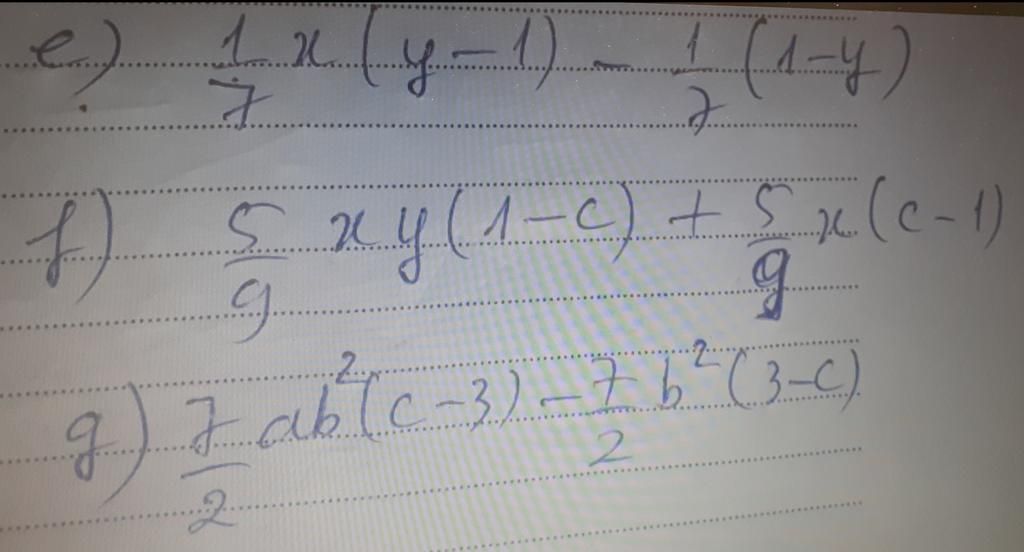 e) 1/7 x (y-1) - 1/7 (1-y)
f) 5/9 xy(1-c) + 5/9 x(c-1)
g) 7/2 ab²(c-3) - 7/2 b²(3-c)